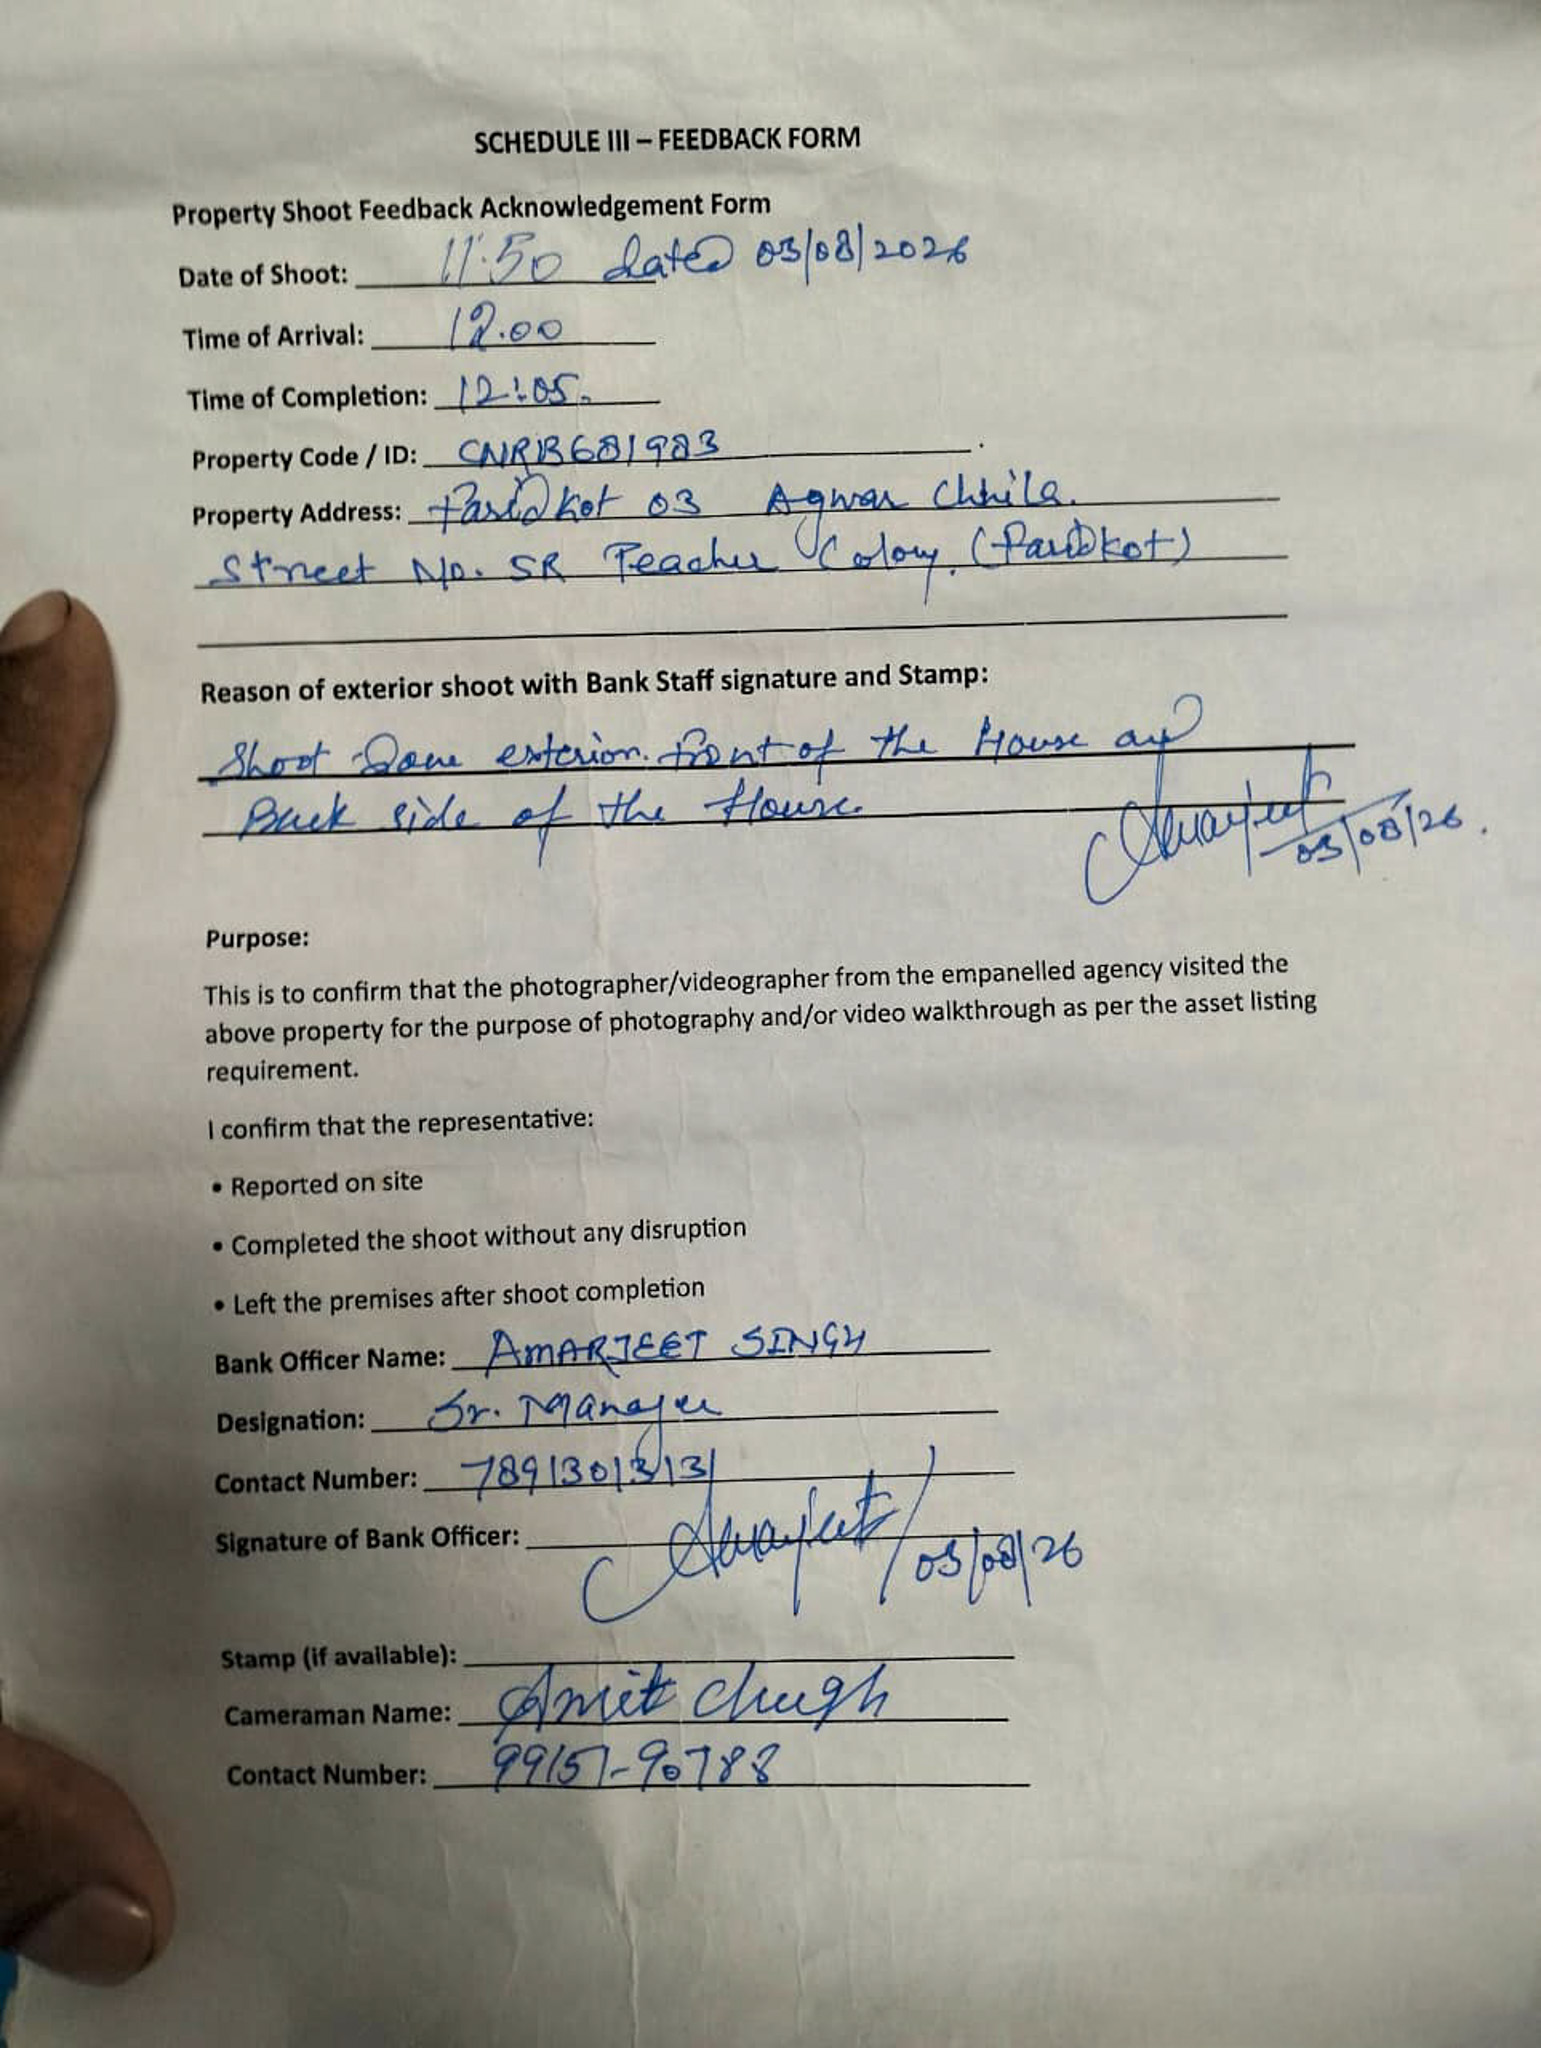 SCHEDULE III – FEEDBACK FORM
Property Shoot Feedback Acknowledgement Form
Date of Shoot: 11:50 dated 03/08/2026
Time of Arrival: 12.00
Time of Completion: 12:05.
Property Code / ID: CNRB681983
Property Address: Faridkot 03 Agwar Chhila.
Street No. 5R Teacher Colony. (Faridkot)
Reason of exterior shoot with Bank Staff signature and Stamp:
Shoot Done exterior. front of the House and
Back side of the House.
Amarjeet 03/08/26.
Purpose:
This is to confirm that the photographer/videographer from the empanelled agency visited the
above property for the purpose of photography and/or video walkthrough as per the asset listing
requirement.
I confirm that the representative:
• Reported on site
• Completed the shoot without any disruption
• Left the premises after shoot completion
Bank Officer Name: AMARJEET SINGH
Designation: Sr. Manager
Contact Number: 7891301313
Signature of Bank Officer: Amarjeet 03/08/26
Stamp (if available):
Cameraman Name: Amit Chugh
Contact Number: 99151-90788